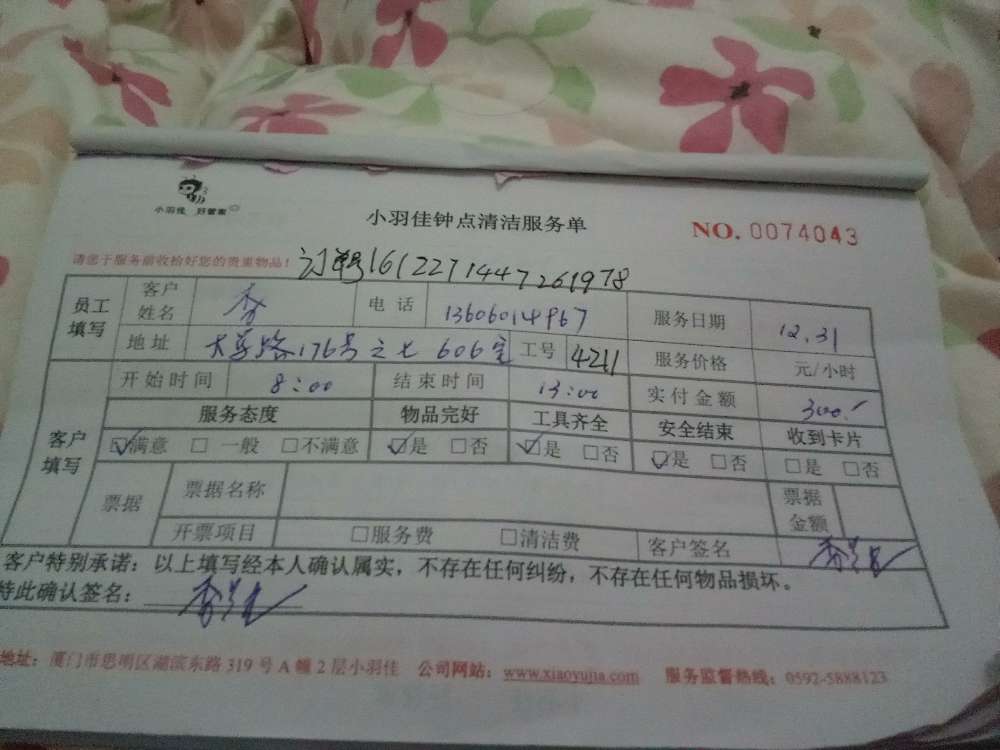 小羽佳 好管家
小羽佳钟点清洁服务单
NO. 0074043
请您于服务前收拾好您的贵重物品！
订单号161227144726 1978
员工填写 客户姓名 李 电话 13606014967 服务日期 12.31
地址 大学路176号之七 606室 工号 4211 服务价格 元/小时
客户填写 开始时间 8:00 结束时间 13:00 实付金额 300.
服务态度 物品完好 工具齐全 安全结束 收到卡片
☑满意 □一般 □不满意 ☑是 □否 ☑是 □否 ☑是 □否 □是 □否
票据 票据名称 票据金额
开票项目 □服务费 □清洁费 客户签名
客户特别承诺：以上填写经本人确认属实，不存在任何纠纷，不存在任何物品损坏。
特此确认签名：
地址：厦门市思明区湖滨东路319号A幢2层小羽佳 公司网站：www.xiaoyujia.com 服务监督热线：0592-5888123